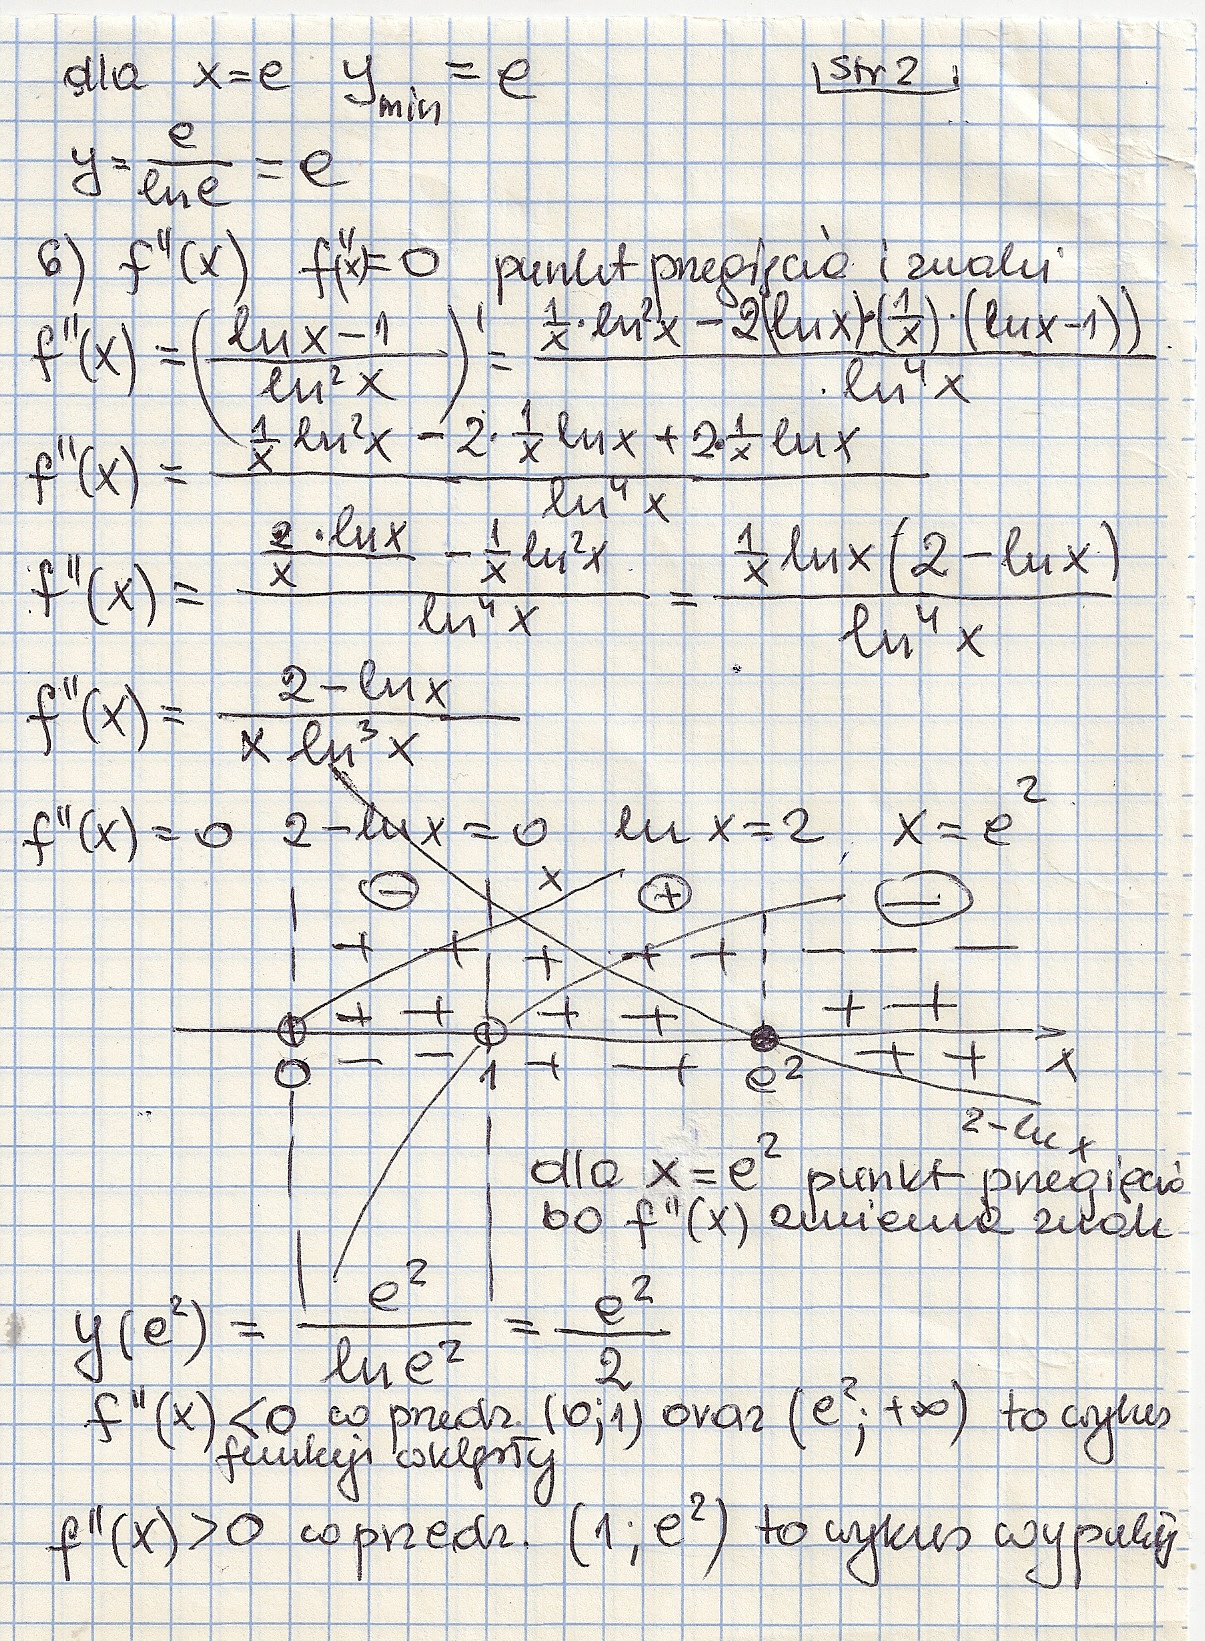 dla x=e y min = e str 2
y = e/ln e = e
6) f''(x) f''(x)=0 punkt przegięcia i znaki
f''(x) = ((ln x − 1)/(ln² x))' = (1/x · ln² x − 2(ln x)·(1/x)·(ln x − 1))/(ln⁴ x)
f''(x) = (1/x ln² x − 2 · 1/x ln x + 2 · 1/x ln x)/(ln⁴ x)
f''(x) = (2/x · ln x − 1/x ln² x)/(ln⁴ x) = (1/x ln x (2 − ln x))/(ln⁴ x)
f''(x) = (2 − ln x)/(x ln³ x)
f''(x) = 0 2 − ln x = 0 ln x = 2, x = e²
− x + −
+ + + + + − − −
+ + + + + +
0 − − 1 + + e² + + x
2 − ln x
dla x = e² punkt przegięcia
bo f''(x) zmienia znak
y(e²) = e²/(ln e²) = e²/2
f''(x) < 0 w przedz. (0;1) oraz (e²; +∞) to wykres
funkcji wklęsły
f''(x) > 0 w przedz. (1; e²) to wykres wypukły